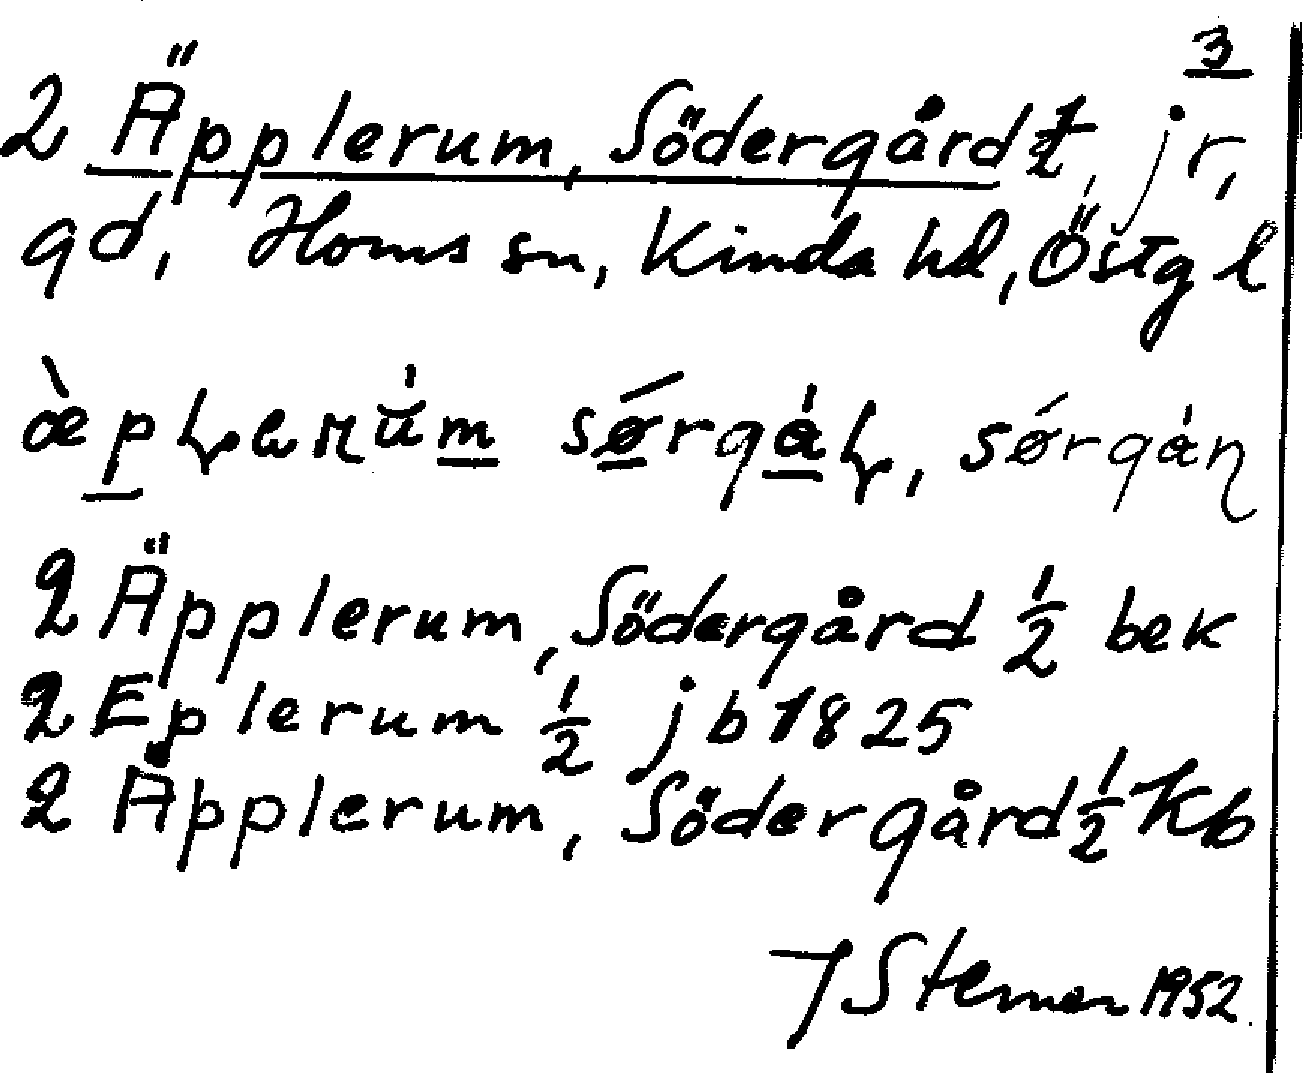 3
2 Äpplerum, Södergård ½, jr,
gd, Horns sn, Kinda hd, Östg l
2 Äpplerum, Södergård ½ bek
2 Eplerum ½ jb 1825
2 Äpplerum, Södergård ½ Kb
J Sterner 1952